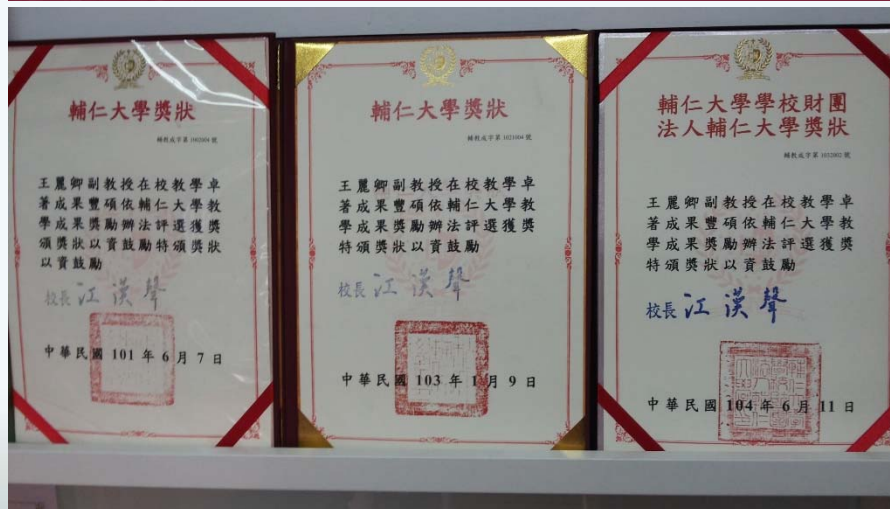 輔仁大學獎狀
王麗卿副教授在校教學卓
著成果豐碩依輔仁大學教
學成果獎勵辦法評選獲獎
頒獎狀以資鼓勵特頒獎狀
以資鼓勵
校長 江漢聲
中華民國 101 年 6 月 7 日
輔仁大學獎狀
王麗卿副教授在校教學卓
著成果豐碩依輔仁大學教
學成果獎勵辦法評選獲獎
特頒獎狀以資鼓勵
校長 江漢聲
中華民國 103 年 1 月 9 日
輔仁大學學校財團
法人輔仁大學獎狀
王麗卿副教授在校教學卓
著成果豐碩依輔仁大學教
學成果獎勵辦法評選獲獎
特頒獎狀以資鼓勵
校長 江漢聲
中華民國 104 年 6 月 11 日